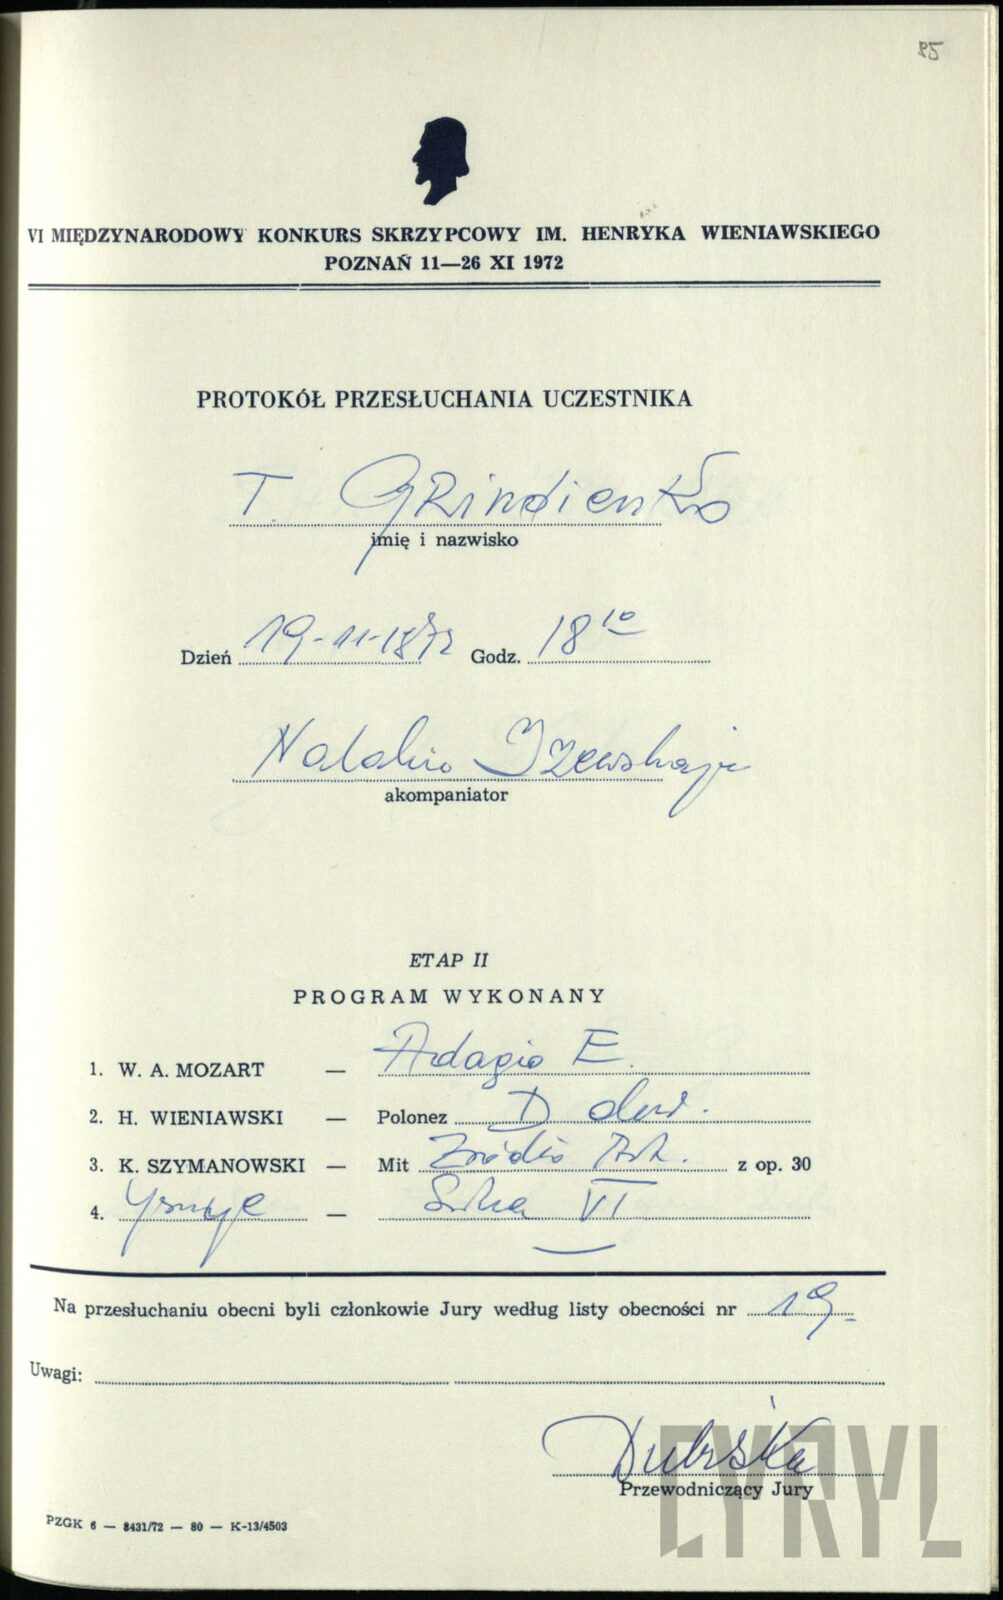 85
VI MIĘDZYNARODOWY KONKURS SKRZYPCOWY IM. HENRYKA WIENIAWSKIEGO
POZNAŃ 11—26 XI 1972
PROTOKÓŁ PRZESŁUCHANIA UCZESTNIKA
T. GRindienko
imię i nazwisko
Dzień 19-11-1972 Godz. 18 10
Natalia Iżewskaja
akompaniator
ETAP II
PROGRAM WYKONANY
1. W. A. MOZART — Adagio E.
2. H. WIENIAWSKI — Polonez D dur.
3. K. SZYMANOWSKI — Mit Źródło Aret. z op. 30
4. Ysaye — VI
Na przesłuchaniu obecni byli członkowie Jury według listy obecności nr 19
Uwagi:
Dubiska
Przewodniczący Jury
PZGK 6 — 8431/72 — 80 — K-13/4503
CYRYL